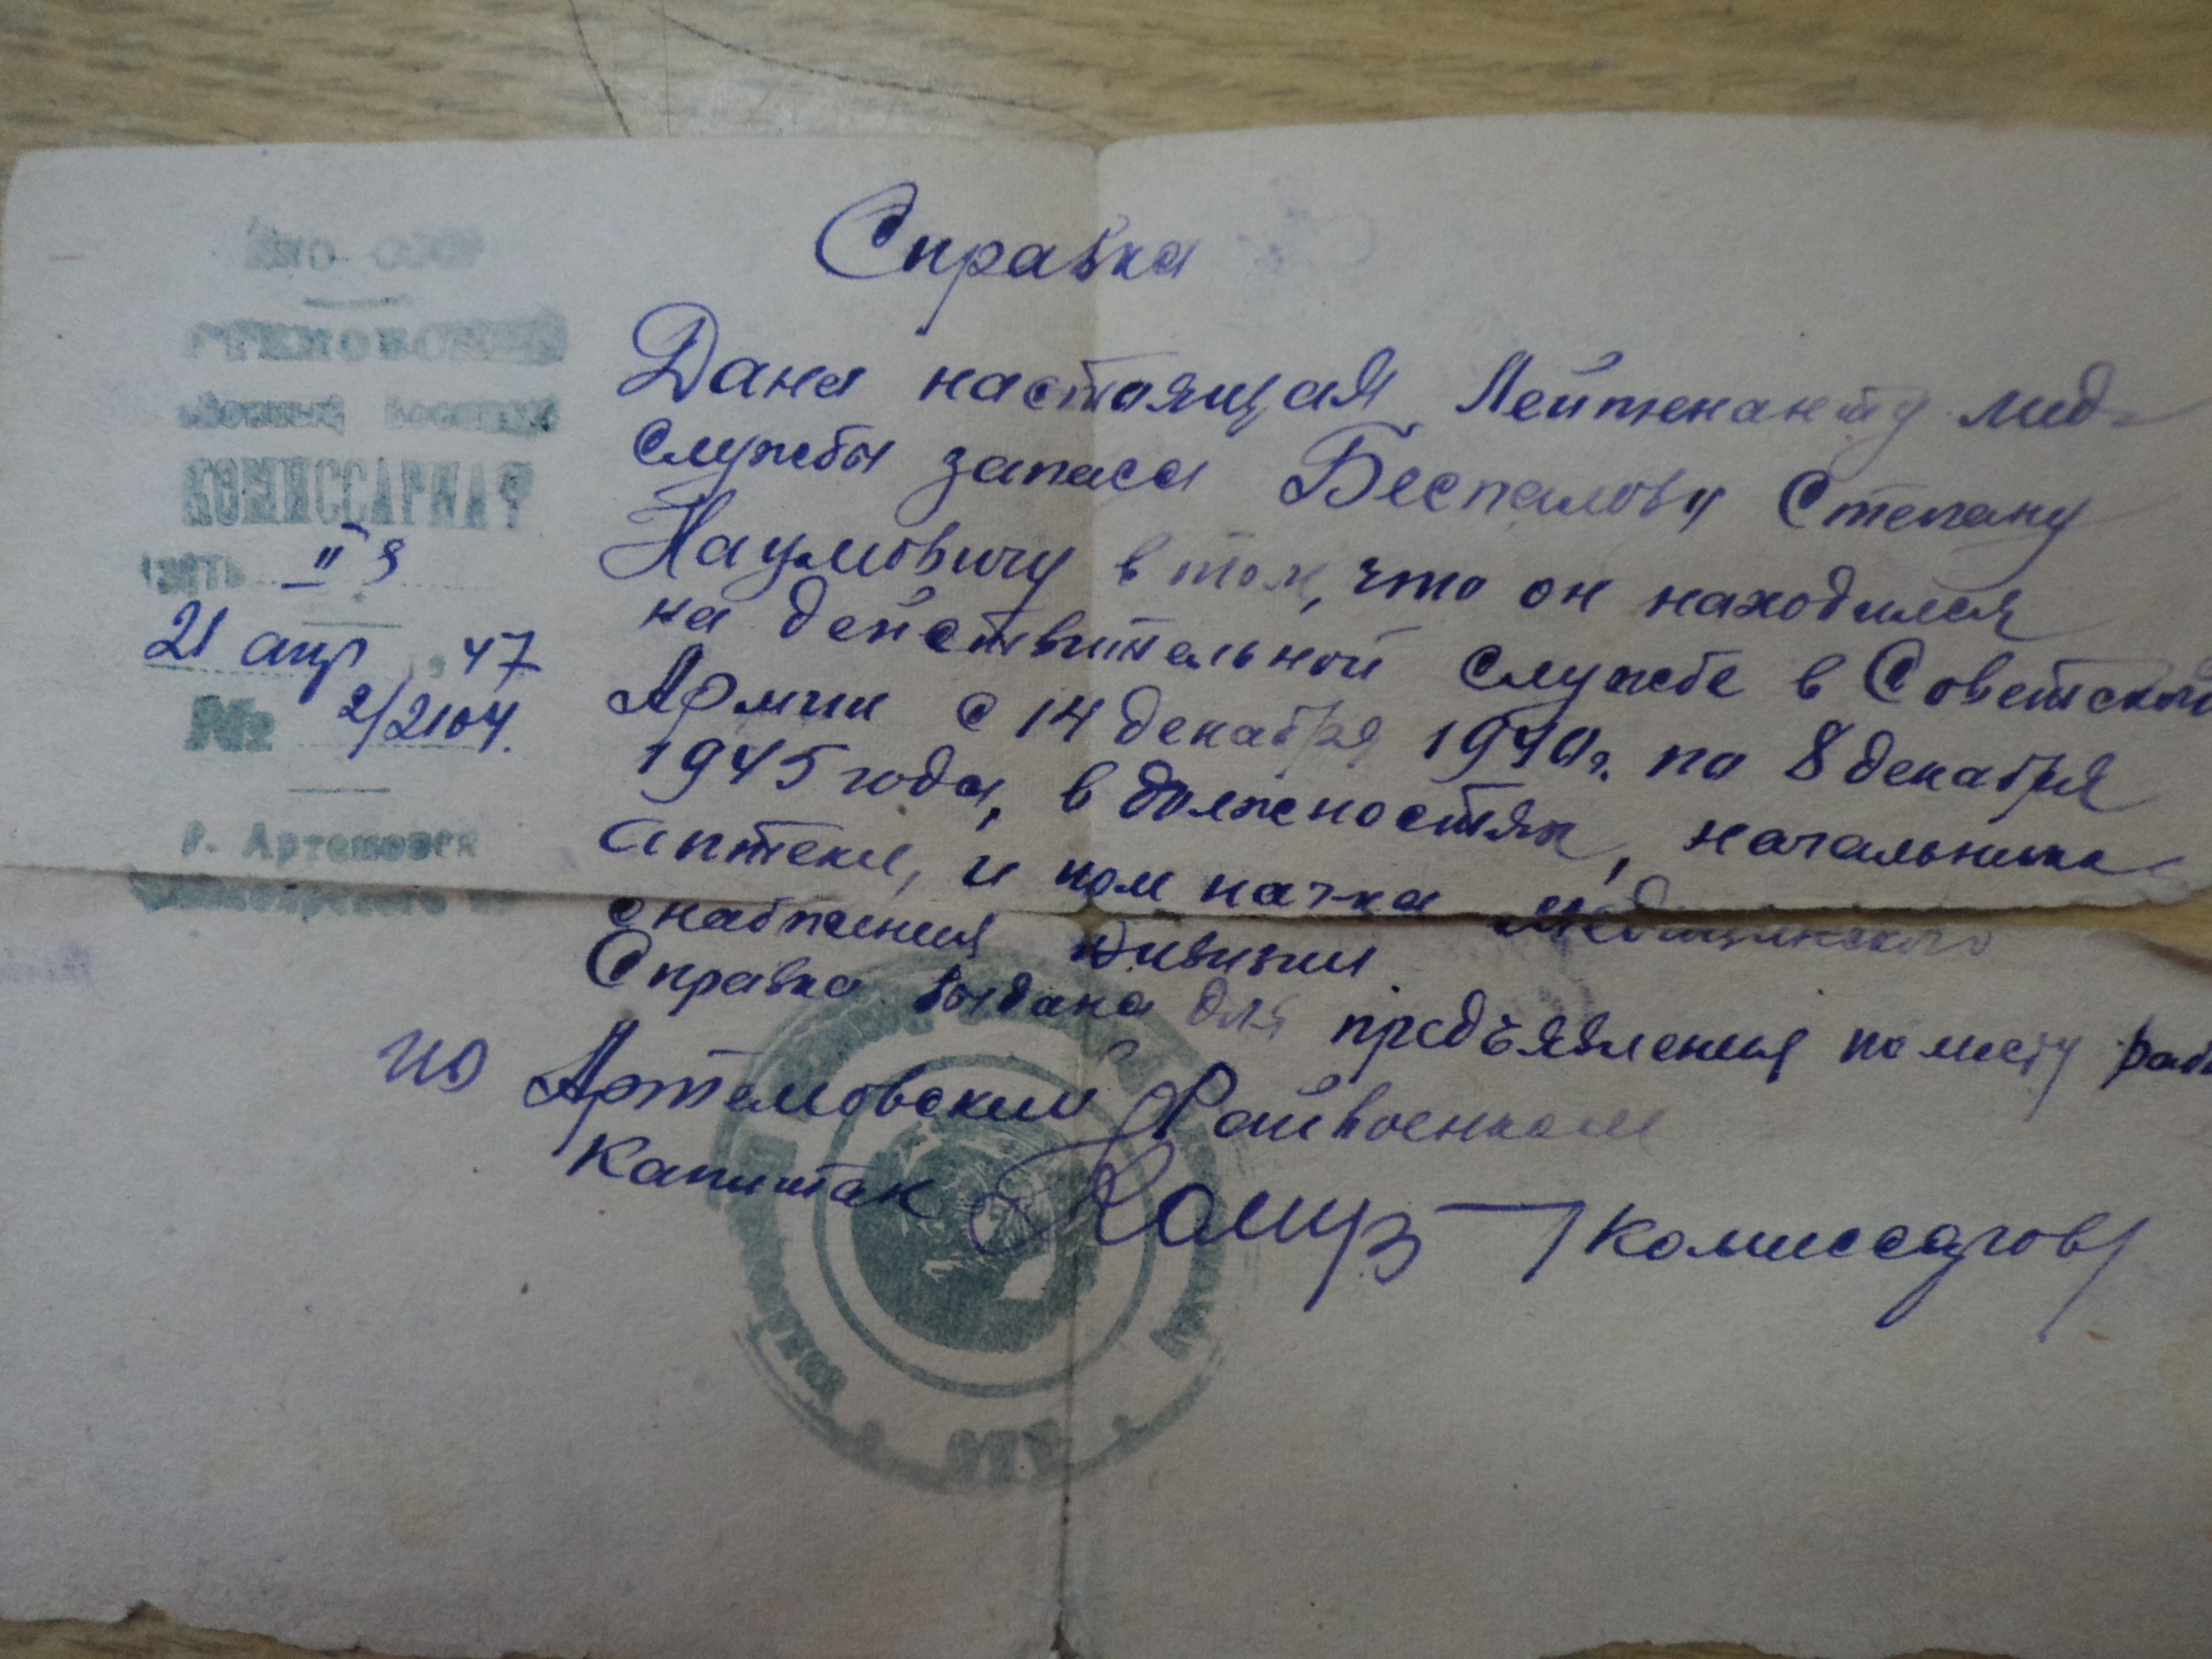 Справка
КОМИССАРИАТ
часть II 3
21 апр 47
№ 2/2104.
г. Артемовск
Дана настоящая Лейтенанту мед-
службы запаса Беспалову Степану
Наумовичу в том, что он находился
на действительной службе в Советской
Армии с 14 декабря 1940г. по 8 декабря
1945 года, в должностях, начальника
аптеки, и пом нач-ка Медицинского
снабжения дивизии
Справка выдана для предъявления по месту раб
ИО Артемовский Райвоенком
Капитан /Комиссаров/